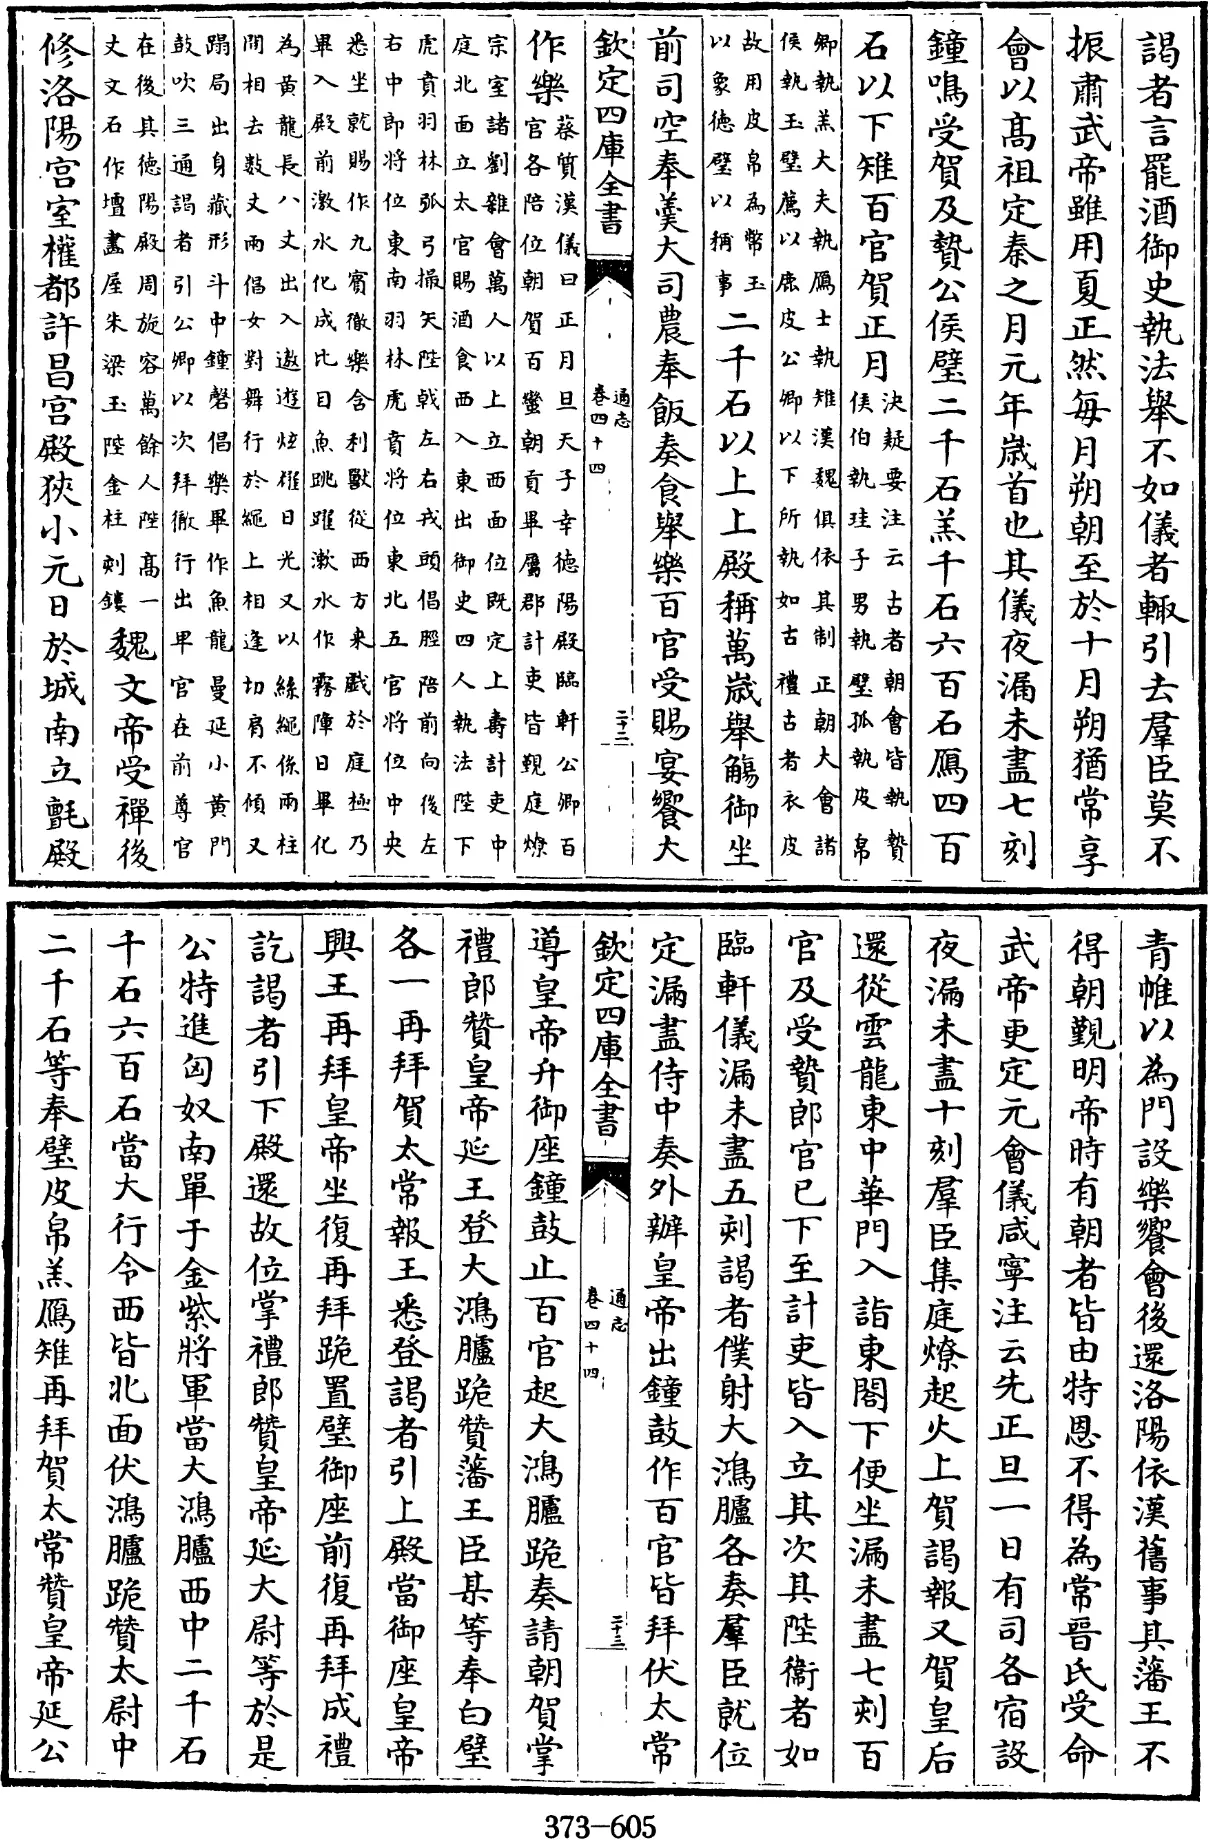 謁者言罷酒御史執法舉不如儀者輙引去羣臣莫不
振肅武帝雖用夏正然每月朔朝至於十月朔猶常享
會以髙祖定秦之月元年嵗首也其儀夜漏未盡七刻
鐘鳴受賀及贄公侯璧二千石羔千石六百石鴈四百
石以下雉百官賀正月
決疑要注云古者朝會皆執贄
侯伯執珪子男執璧孤執皮帛
卿執羔大夫執鴈士執雉漢魏俱依其制正朝大會諸
侯執玉璧薦以鹿皮公卿以下所執如古禮古者衣皮
故用皮帛為幣玉
以象德璧以稱事
二千石以上上殿稱萬嵗舉觴御坐
前司空奉羮大司農奉飯奏食舉樂百官受賜宴饗大
欽定四庫全書
通志
卷四十四
二十二
作樂
蔡質漢儀曰正月旦天子幸德陽殿臨軒公卿百
官各陪位朝賀百蠻朝貢畢屬郡計吏皆覲庭燎
宗室諸劉雜會萬人以上立西面位既定上壽計吏中
庭北面立太官賜酒食西入東出御史四人執法陛下
虎賁羽林弧弓撮矢陛戟左右戎頭偪脛陪前向後左
右中郎將位東南羽林虎賁將位東北五官將位中央
悉坐就賜作九賓徹樂舍利獸從西方來戯於庭極乃
畢入殿前激水化成比目魚跳躍漱水作霧障日畢化
為黄龍長八丈出入遨遊炫耀日光又以絲繩係兩柱
間相去數丈兩倡女對舞行於繩上相逢切肩不傾又
蹋局出身藏形斗中鐘磬倡樂畢作魚龍曼延小黄門
鼓吹三通謁者引公卿以次拜徹行出卑官在前尊官
在後其德陽殿周旋容萬餘人陛髙一
丈文石作壇畫屋朱梁玉陛金柱刻鏤
魏文帝受禪後
修洛陽宫室權都許昌宫殿狹小元日於城南立氈殿
青帷以為門設樂饗會後還洛陽依漢舊事其藩王不
得朝覲明帝時有朝者皆由特恩不得為常晉氏受命
武帝更定元會儀咸寧注云先正旦一日有司各宿設
夜漏未盡十刻羣臣集庭燎起火上賀謁報又賀皇后
還從雲龍東中華門入詣東閣下便坐漏未盡七刻百
官及受贄郎官已下至計吏皆入立其次其陛衛者如
臨軒儀漏未盡五刻謁者僕射大鴻臚各奏羣臣就位
定漏盡侍中奏外辦皇帝出鐘鼓作百官皆拜伏太常
欽定四庫全書
通志
卷四十四
二十三
導皇帝升御座鐘鼓止百官起大鴻臚跪奏請朝賀掌
禮郎贊皇帝延王登大鴻臚跪贊藩王臣某等奉白璧
各一再拜賀太常報王悉登謁者引上殿當御座皇帝
興王再拜皇帝坐復再拜跪置璧御座前復再拜成禮
訖謁者引下殿還故位掌禮郎贊皇帝延大尉等於是
公特進匈奴南單于金紫將軍當大鴻臚西中二千石
千石六百石當大行令西皆北面伏鴻臚跪贊太尉中
二千石等奉璧皮帛羔鴈雉再拜賀太常贊皇帝延公
373-605